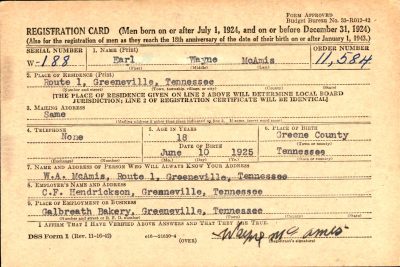 FORM APPROVED
Budget Bureau No. 33-R012-42
REGISTRATION CARD (Men born on or after July 1, 1924, and on or before December 31, 1924)
(Also for the registration of men as they reach the 18th anniversary of the date of their birth on or after January 1, 1943.)
SERIAL NUMBER 1. NAME (Print) ORDER NUMBER
W-188 Earl Wayne McAmis 11,584
(First) (Middle) (Last)
2. PLACE OF RESIDENCE (Print)
Route 1, Greeneville, Tennessee
[THE PLACE OF RESIDENCE GIVEN ON LINE 2 ABOVE WILL DETERMINE LOCAL BOARD
JURISDICTION; LINE 2 OF REGISTRATION CERTIFICATE WILL BE IDENTICAL]
3. MAILING ADDRESS
Same
4. TELEPHONE 5. AGE IN YEARS 6. PLACE OF BIRTH
None 18 Greene County
DATE OF BIRTH
June 10 1925 Tennessee
7. NAME AND ADDRESS OF PERSON WHO WILL ALWAYS KNOW YOUR ADDRESS
W.A. McAmis, Route 1, Greeneville, Tennessee
8. EMPLOYER'S NAME AND ADDRESS
C.F. Hendrickson, Greeneville, Tennessee
9. PLACE OF EMPLOYMENT OR BUSINESS
Galbreath Bakery, Greeneville, Tennessee
I AFFIRM THAT I HAVE VERIFIED ABOVE ANSWERS AND THAT THEY ARE TRUE.
DSS Form 1 (Rev. 11-16-42) (OVER) Wayne McAmis
(Registrant's signature)